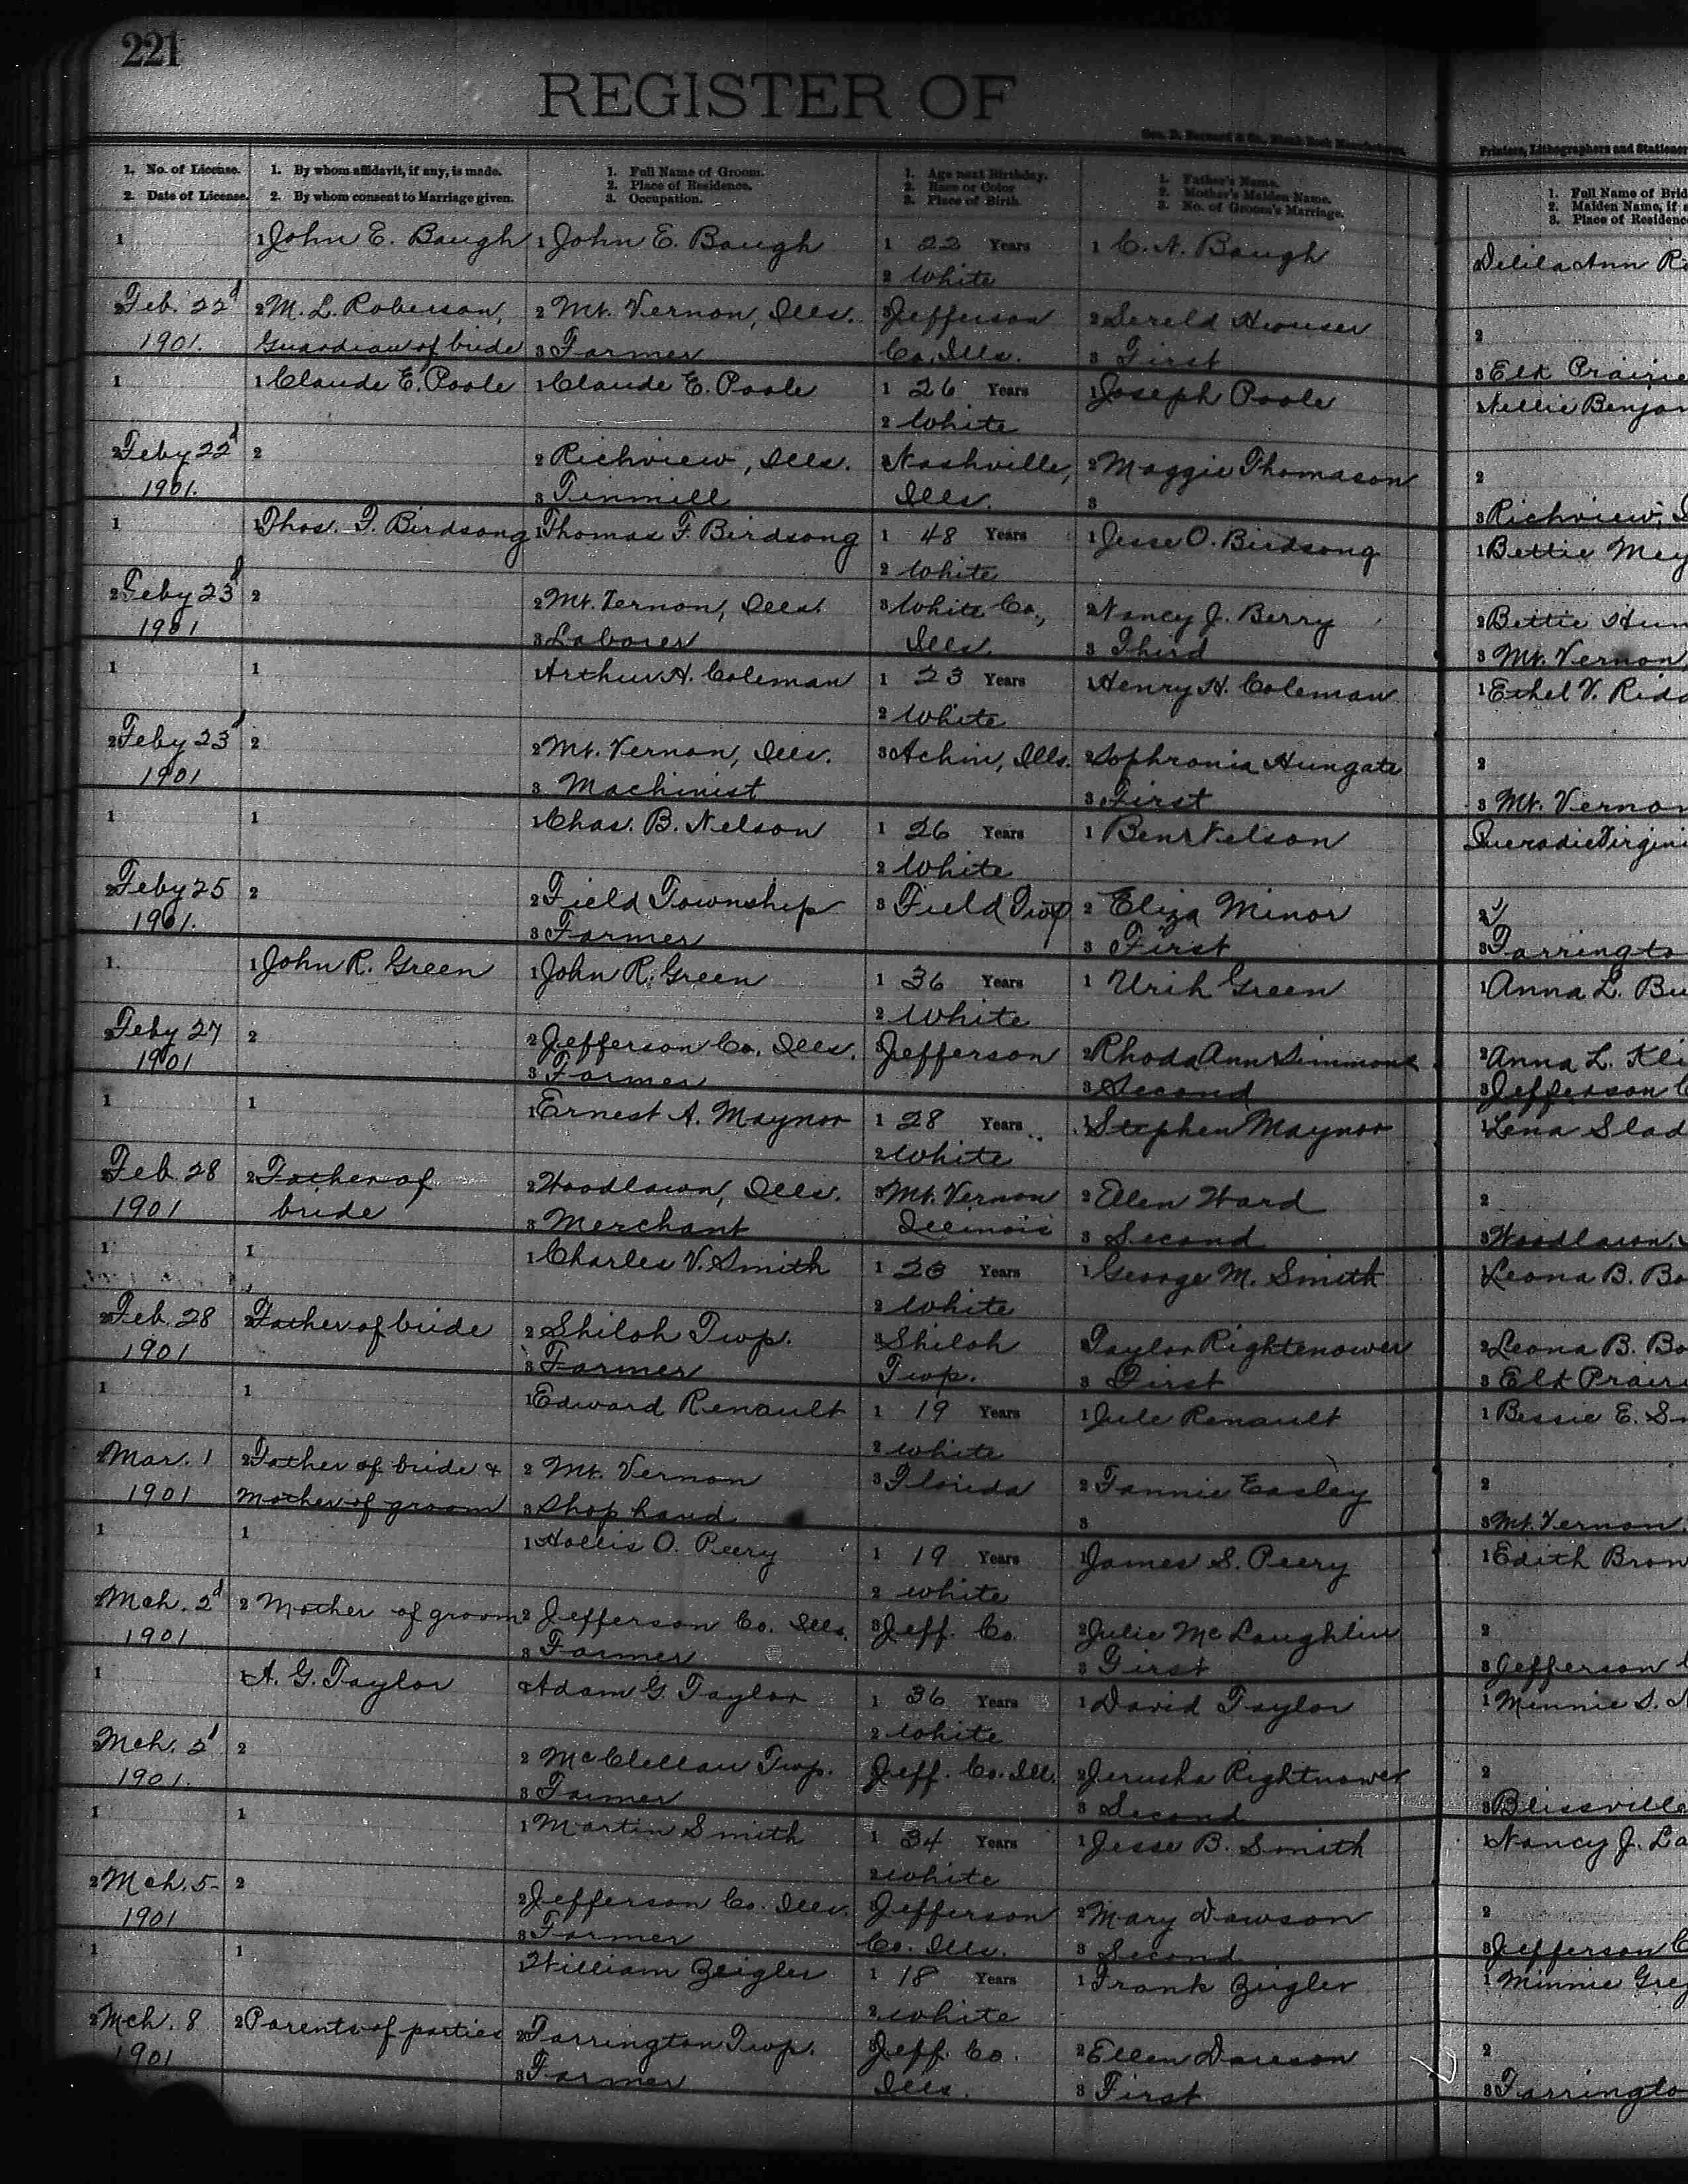 221
REGISTER OF
Geo. D. Barnard & Co., Blank Book Manufacturers,
Printers, Lithographers and Stationer
1. No. of License.
2. Date of License.
1. By whom affidavit, if any, is made.
2. By whom consent to Marriage given.
1. Full Name of Groom.
2. Place of Residence.
3. Occupation.
1. Age next Birthday.
2. Race or Color
3. Place of Birth.
1. Father's Name.
2. Mother's Maiden Name.
3. No. of Groom's Marriage.
1. Full Name of Brid
2. Maiden Name, if
3. Place of Residence
1
2 Feb. 22d
1901.
1 John E. Baugh
2 M. L. Roberson,
Guardian of bride
1 John E. Baugh
2 Mt. Vernon, Ills.
3 Farmer
1 22 Years
2 White
3 Jefferson
Co. Ills.
1 C. N. Baugh
2 Sereld Houser
3 First
Delila Ann
2
3 Elk Prairie
1
2 Feby 22d
1901.
1 Claude E. Poole
2
1 Claude E. Poole
2 Richview, Ills.
3 Tinmill
1 26 Years
2 White
3 Nashville,
Ills.
1 Joseph Poole
2 Maggie Thomason
3
Nellie Benjam
2
3 Richview,
1
2 Feby 23d
1901
1 Thos. F. Birdsong
2
1 Thomas F. Birdsong
2 Mt. Vernon, Ills.
3 Laborer
1 48 Years
2 White
3 White Co.,
Ills.
1 Jesse O. Birdsong
2 Nancy J. Berry
3 Third
1 Bettie May
2 Bettie Hun
3 Mt. Vernon
1
2 Feby 23d
1901
1
2
1 Arthur H. Coleman
2 Mt. Vernon, Ills.
3 Machinist
1 23 Years
2 White
3 Achin, Ills.
1 Henry H. Coleman
2 Sophronia Hungate
3 First
1 Ethel V. Ridd
2
3 Mt. Vernon
1
2 Feby 25
1901.
1
2
1 Chas. B. Nelson
2 Field Township
3 Farmer
1 26 Years
2 White
3 Field Twp
1 Benr Nelson
2 Eliza Minor
3 First
Virgini
2
3 Farringto
1.
2 Feby 27
1901
1 John R. Green
2
1 John R. Green
2 Jefferson Co. Ills.
3 Farmer
1 36 Years
2 White
3 Jefferson
1 Urih Green
2 Rhoda Ann Simmons
3 Second
1 Anna L. Bu
2 Anna L. Kli
3 Jefferson C
1
2 Feb. 28
1901
1
2 Father of
bride
1 Ernest A. Maynor
2 Woodlawn, Ills.
3 Merchant
1 28 Years
2 White
3 Mt. Vernon
Illinois
1 Stephen Maynor
2 Ellen Ward
3 Second
1 Lena Slad
2
3 Woodlawn,
1
2 Feb. 28
1901
1
2 Father of bride
1 Charles V. Smith
2 Shiloh Twp.
3 Farmer
1 23 Years
2 White
3 Shiloh
Twp.
1 George M. Smith
Taylor Rightenower
3 First
Leona B. Bo
2 Leona B. Bo
3 Elk Prairi
1
2 Mar. 1
1901
1
2 Father of bride &
Mother of groom
1 Edward Renault
2 Mt. Vernon
3 Shop hand
1 19 Years
2 white
3 Florida
1 Jule Renault
2 Fannie Easley
3
1 Bessie E. S
2
3 Mt. Vernon.
1
2 Mch. 2d
1901
1
2 Mother of groom
1 Hollis O. Peery
2 Jefferson Co. Ills.
3 Farmer
1 19 Years
2 white
3 Jeff. Co.
1 James S. Peery
2 Julie McLaughlin
3 First
1 Edith Brow
2
3 Jefferson
1
2 Mch. 2d
1901.
1 A. G. Taylor
2
1 Adam G. Taylor
2 McClellan Twp.
3 Farmer
1 36 Years
2 White
Jeff. Co. Ill.
1 David Taylor
2 Jerusha Rightnower
3 Second
1 Minnie S.
2
3 Blissville
1
2 Mch. 5-
1901
1
2
1 Martin Smith
2 Jefferson Co. Ills.
3 Farmer
1 34 Years
2 White
Jefferson
Co. Ills.
1 Jesse B. Smith
2 Mary Dawson
3 Second
1 Nancy J. La
2
3 Jefferson C
1
2 Mch. 8
1901
1
2 Parents of parties
1 William Zeigler
2 Farrington Twp.
3 Farmer
1 18 Years
2 White
3 Jeff. Co.
Ills.
1 Frank Zeigler
2 Ellen Dawson
3 First
1 Minnie Greg
2
3 Farringto